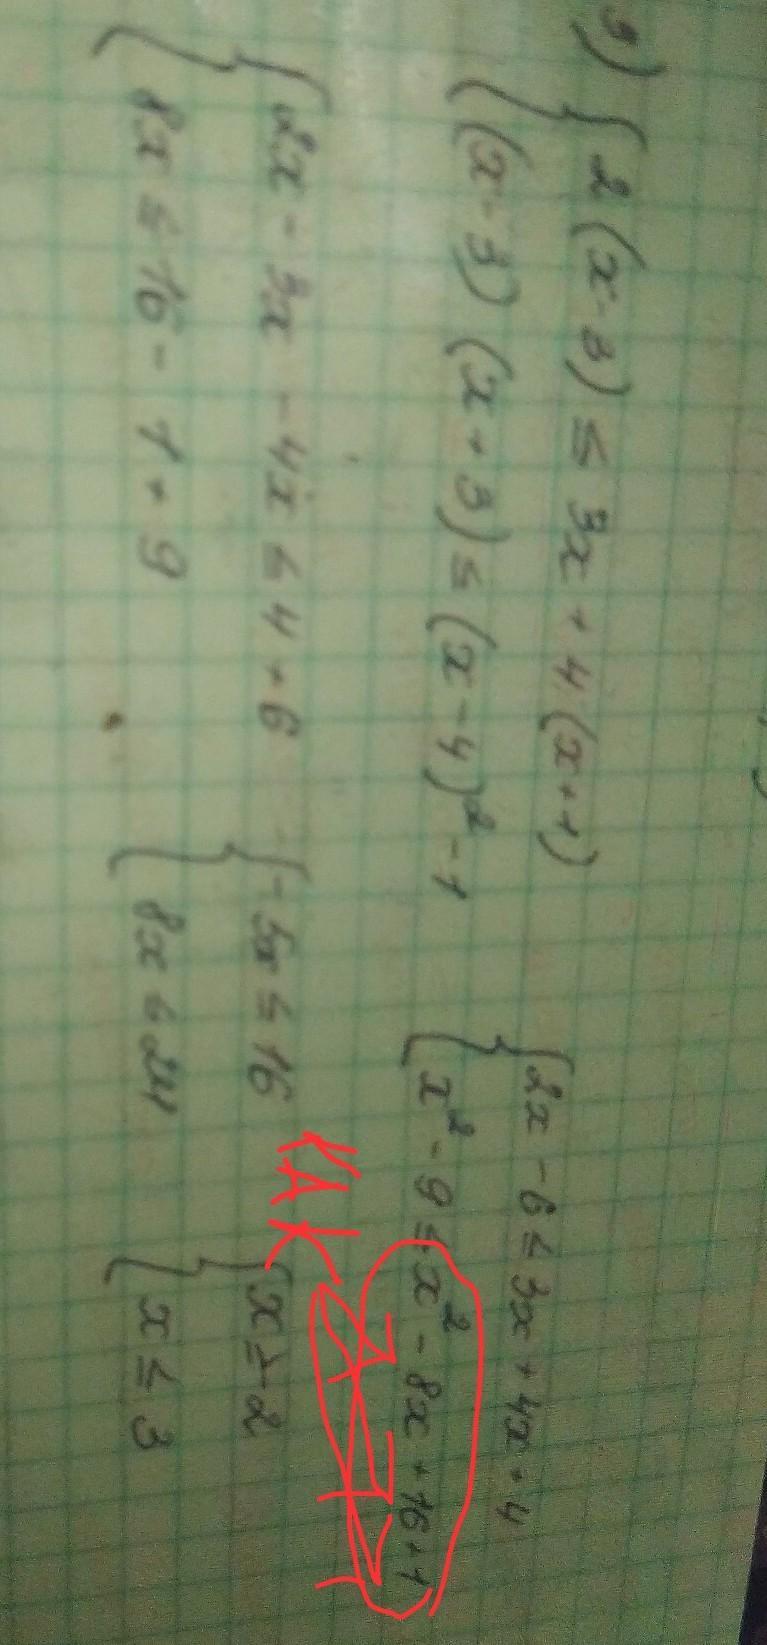 9) { 2(x-3) ≤ 3x + 4(x+1)
(x-3)(x+3) ≤ (x-4)² - 1
{ 2x - 6 ≤ 3x + 4x + 4
x² - 9 ≤ x² - 8x + 16 + 1
{ 2x - 3x - 4x ≤ 4 + 6
8x ≤ 16 - 1 + 9
{ -5x ≤ 16
8x ≤ 24
{ x ≥ -2
x ≤ 3
КАК